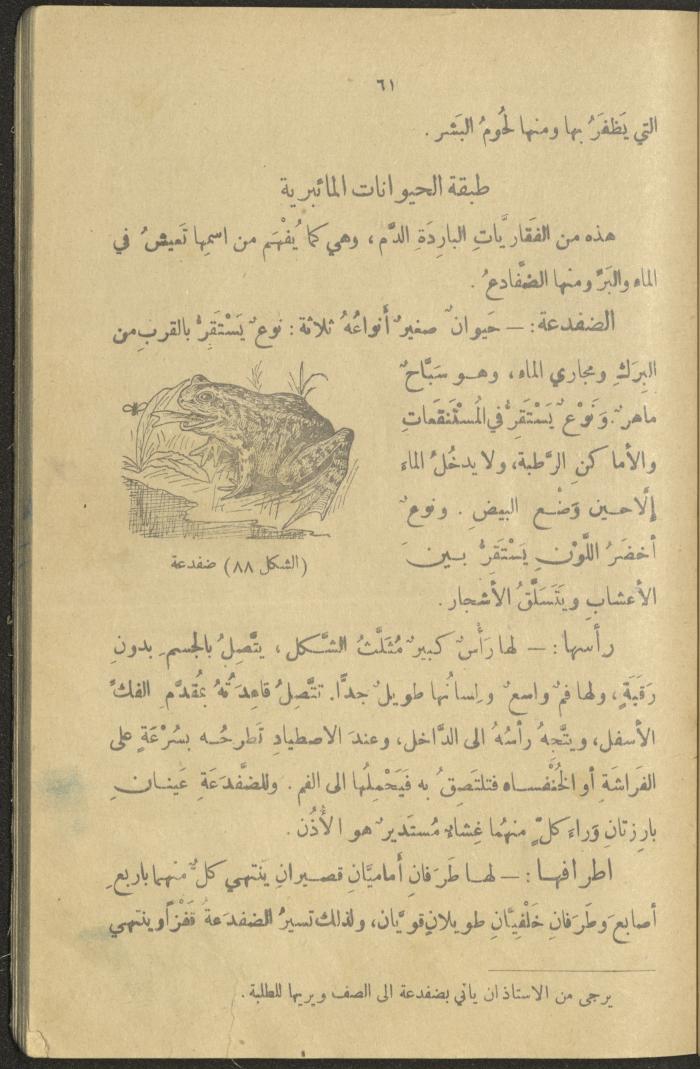 ٦١
التي يَظفَرُ بها ومنها لُحُومُ البَشر .
طبقة الحيوانات المائبرية
هذه من الفَقاريَّاتِ البارِدَةِ الدَّم ، وهي كما يُفْهَم من اسمِها تَعيشُ في
الماء والبَرِّ ومنها الضَّفادعُ .
الضفدعة : — حَيوانٌ صغيرٌ أَنواعُهُ ثلاثة : نوعٌ يَسْتَقِرُّ بالقربِ من
البِرَكِ ومجاري الماء ، وهو سَبَّاحٌ
ماهرٌ . وَنَوْعٌ يَسْتَقِرُّ في المُسْتَنقَعاتِ
والأماكنِ الرَّطبة ، ولا يدخُلُ الماء
إلَّا حين وَضْع البيضِ . ونوعٌ
أخضَرُ اللَّوْنِ يَسْتَقِرُّ بينَ
الأعشابِ ويَتَسَلَّقُ الأشجار .
(الشكل ٨٨) ضفدعة
رأسها : — لها رَأْسٌ كبيرٌ مُثَلَّثُ الشَّكل ، يتَّصِلُ بالجسمِ بدونِ
رَقَبَةٍ ، ولها فمٌ واسعٌ ولِسانُها طويلٌ جدًّا . تتَّصِلُ قاعِدَتُهُ بمُقدَّمِ الفكِّ
الأسفل ، ويتَّجِهُ رأسُهُ الى الدَّاخل ، وعندَ الاصطيادِ تَطرحُه بسُرْعَةٍ على
الفَراشَةِ أو الخُنْفساء فتلتَصِقُ به فيَحْمِلُها الى الفم . وللضَّفدَعَةِ عَينانِ
بارِزتانِ وَراءَ كلٍّ منهُما غِشاءٌ مُستَديرٌ هو الأُذُن .
اطرافها : — لها طَرَفانِ أَماميَّانِ قصيرانِ يَنتهي كلٌّ منهما باربعِ
أصابعَ وطَرَفانِ خَلْفيَّانِ طويلانِ قويَّان ، ولذلك تسيرُ الضفدَعةُ قَفْزاً وينتهي
يرجى من الاستاذ ان يأتي بضفدعة الى الصف ويريها للطلبة .